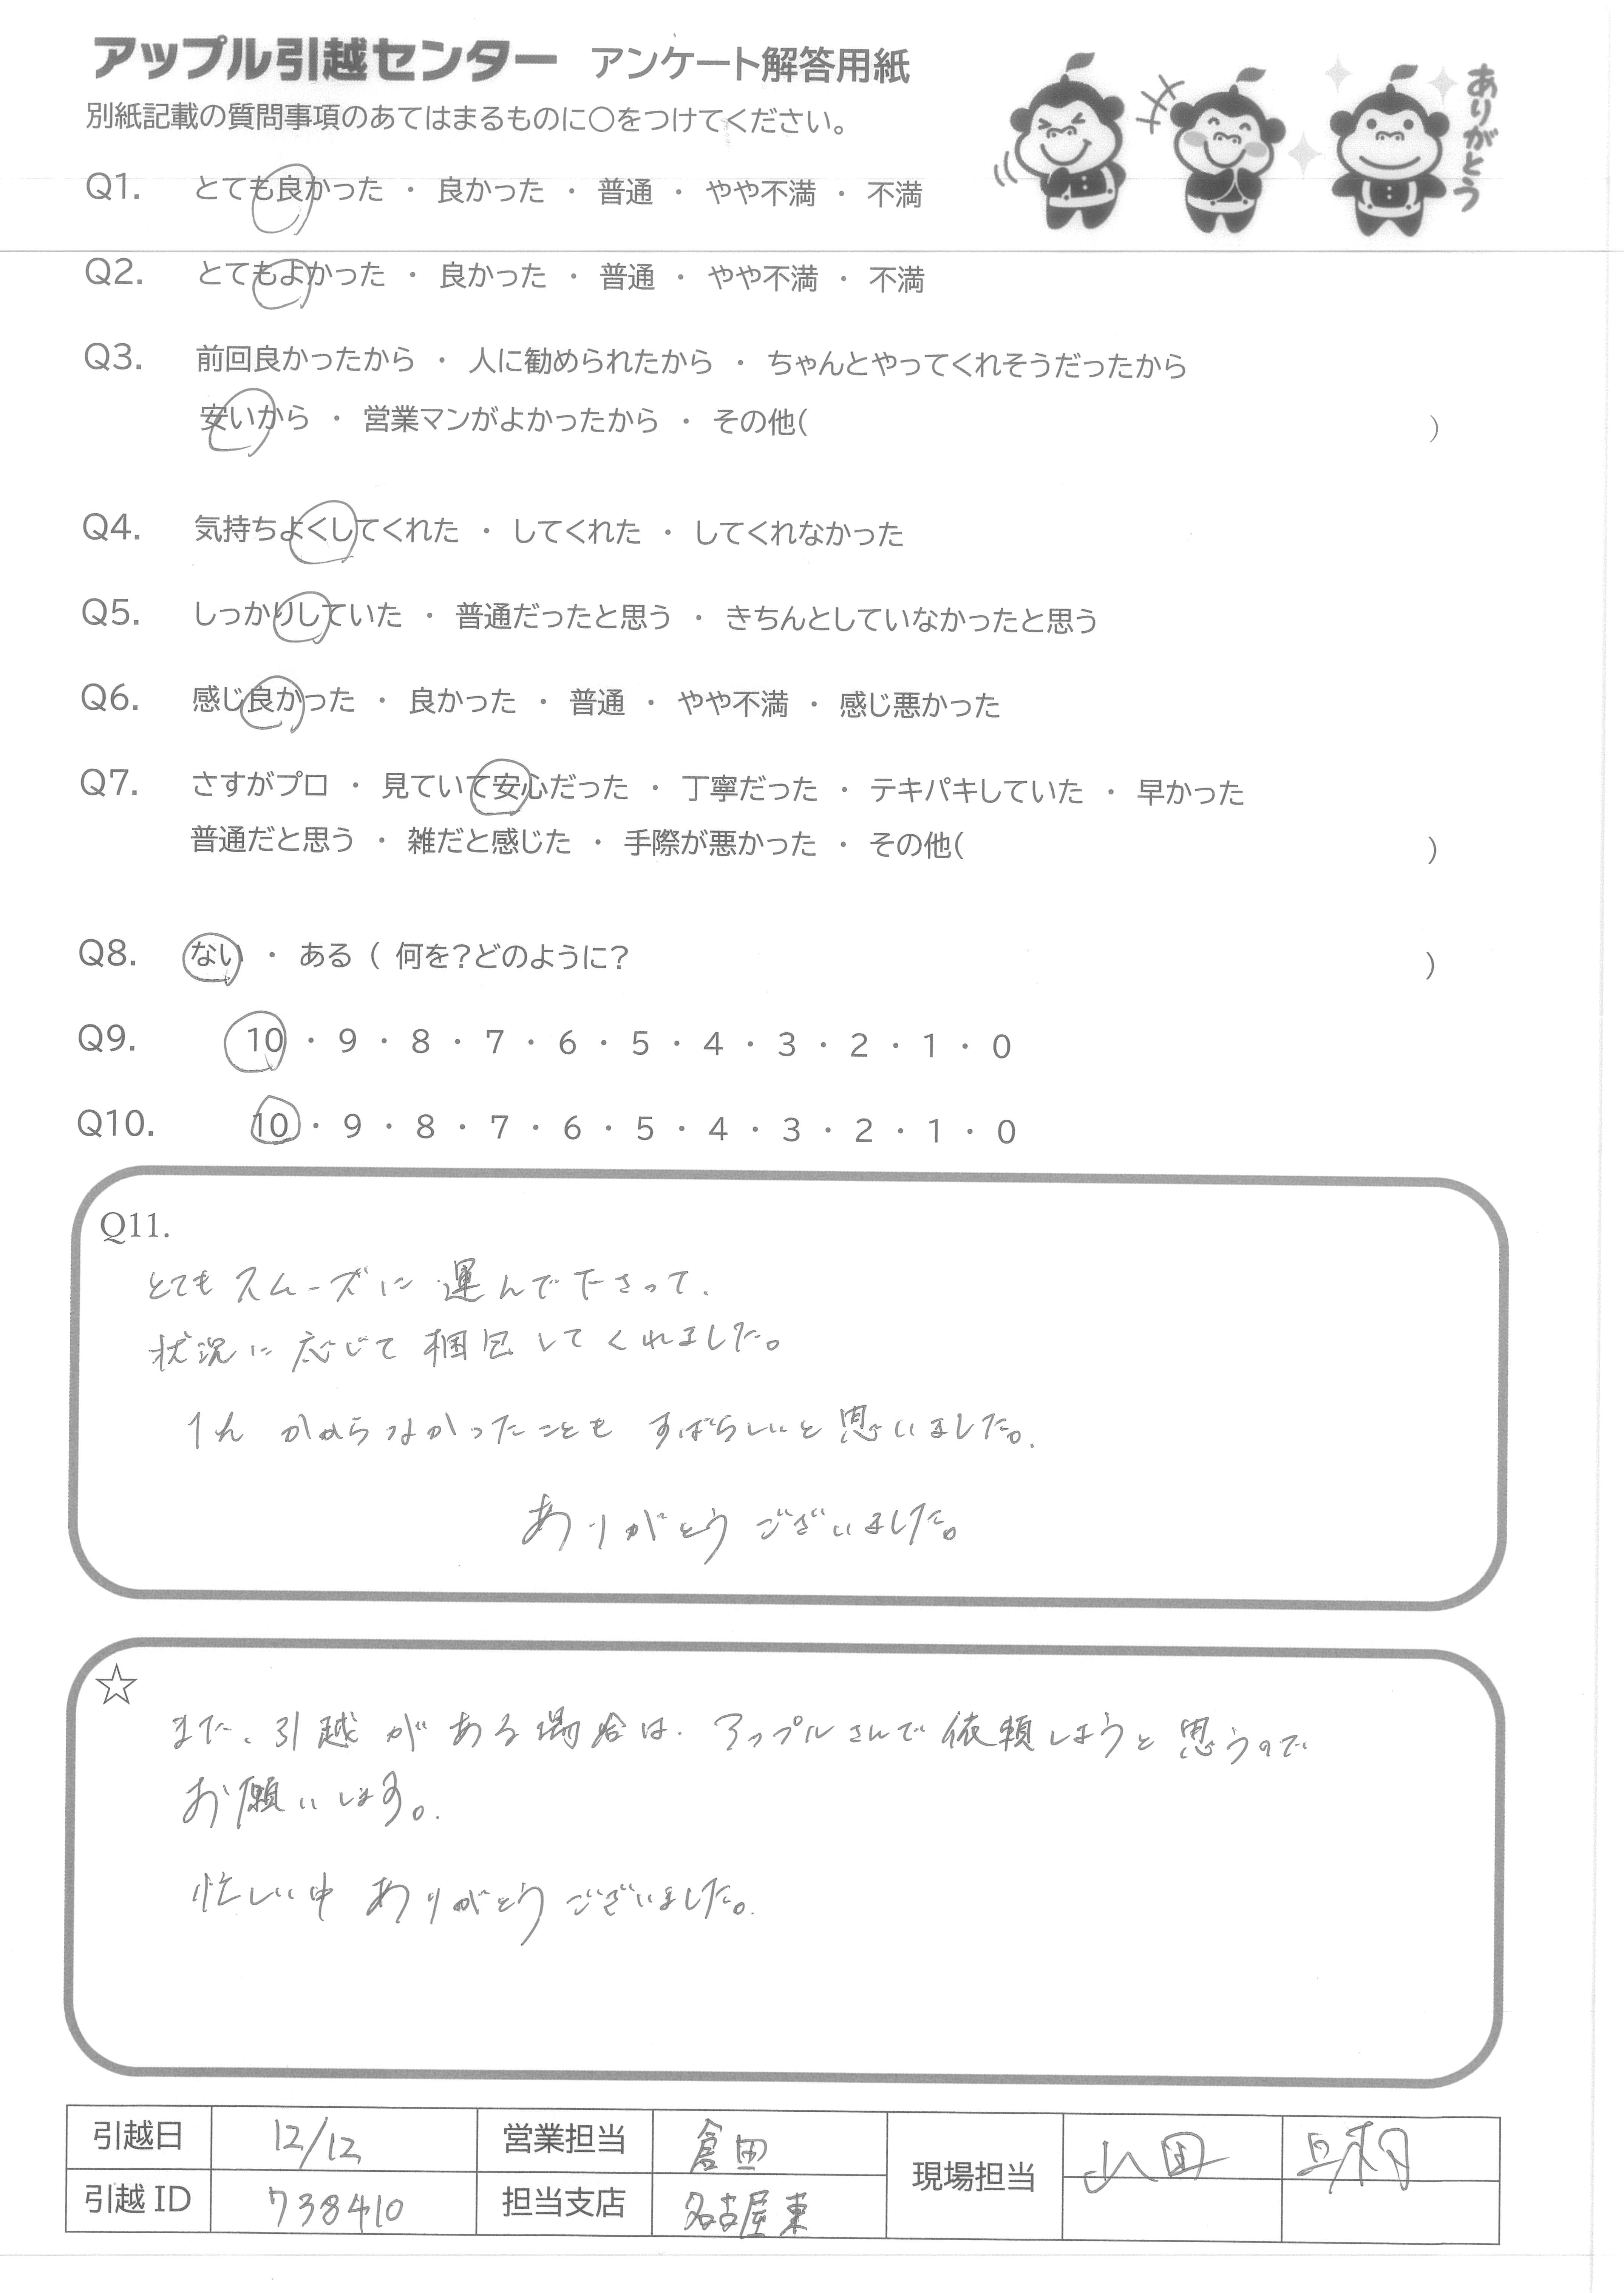 アップル引越センター アンケート解答用紙
別紙記載の質問事項のあてはまるものに○をつけてください。
ありがとう
Q1. とても良かった ・ 良かった ・ 普通 ・ やや不満 ・ 不満
Q2. とてもよかった ・ 良かった ・ 普通 ・ やや不満 ・ 不満
Q3. 前回良かったから ・ 人に勧められたから ・ ちゃんとやってくれそうだったから
安いから ・ 営業マンがよかったから ・ その他( )
Q4. 気持ちよくしてくれた ・ してくれた ・ してくれなかった
Q5. しっかりしていた ・ 普通だったと思う ・ きちんとしていなかったと思う
Q6. 感じ良かった ・ 良かった ・ 普通 ・ やや不満 ・ 感じ悪かった
Q7. さすがプロ ・ 見ていて安心だった ・ 丁寧だった ・ テキパキしていた ・ 早かった
普通だと思う ・ 雑だと感じた ・ 手際が悪かった ・ その他( )
Q8. ない ・ ある ( 何を？どのように？ )
Q9. 10 ・ 9 ・ 8 ・ 7 ・ 6 ・ 5 ・ 4 ・ 3 ・ 2 ・ 1 ・ 0
Q10. 10 ・ 9 ・ 8 ・ 7 ・ 6 ・ 5 ・ 4 ・ 3 ・ 2 ・ 1 ・ 0
Q11.
とてもスムーズに運んで下さって、
状況に応じて梱包してくれました。
1h かからなかったことも すばらしいと思いました。
ありがとうございました。
☆
また、引越がある場合は、アップルさんで依頼しようと思うので
お願いします。
忙しい中 ありがとうございました。
引越日 12/12 営業担当 倉田 現場担当 山田
引越ID 738410 担当支店 名古屋東